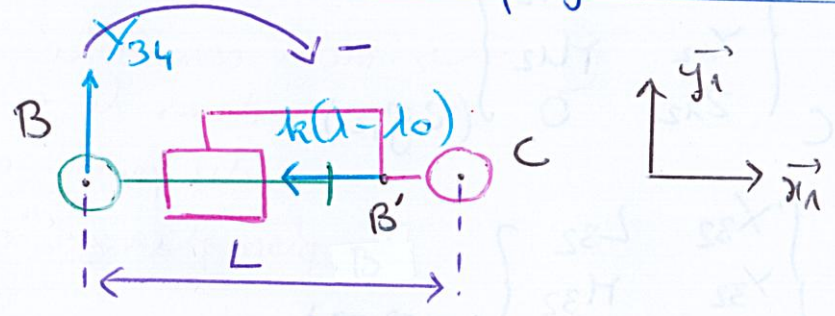 Y₃₄
−
B
k(λ-λ₀)
C
B'
L
y₁
x₁